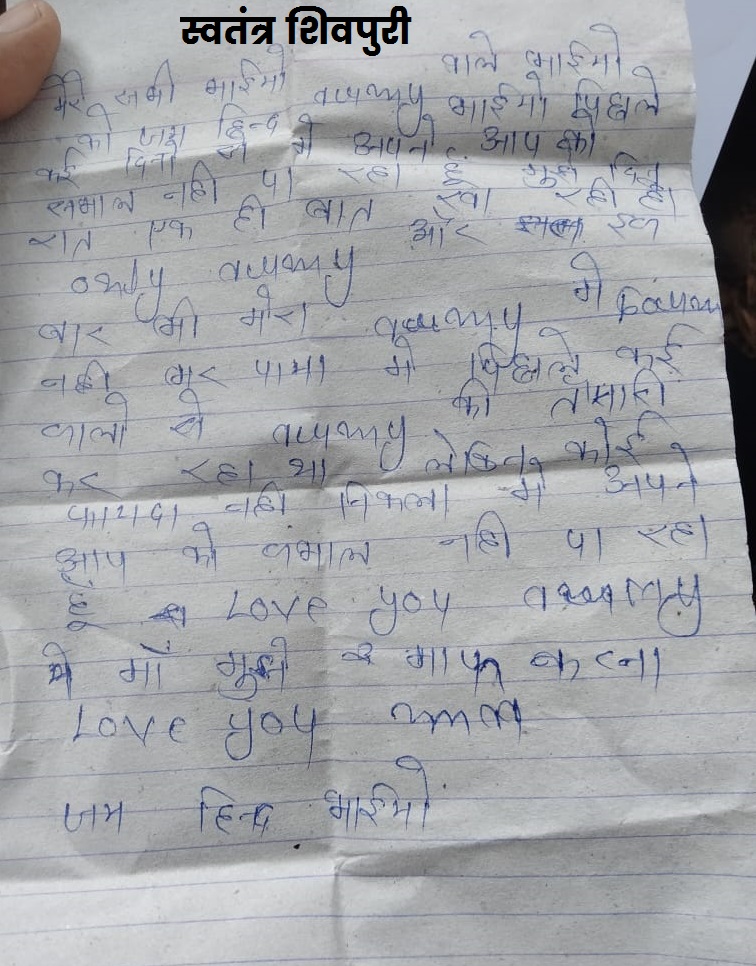 स्वतंत्र शिवपुरी
वाले भाईयो
मेरे सभी भाईयो army भाईयो पिछले
को जय हिन्द
कई दिनो से मे अपने आप को
समाल नही पा रहा हूँ मुझे दिन
रात एक ही बात खा रही है।
only army और इस
बार भी मेरा army मे
नही भर पाया मे पिछले कई
सालो से army की तयारी
कर रहा था लेकिन कोई
फायदा नही निकला मे अपने
आप को समाल नही पा रहा
हूँ Love you army
मे माँ मुझे माफ करना
Love you
जय हिन्द भाईयो